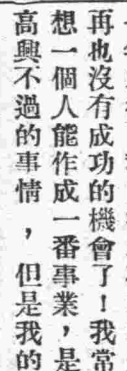 再也沒有成功的機會了！我常
想一個人能作成一番事業，是
高興不過的事情，但是我的